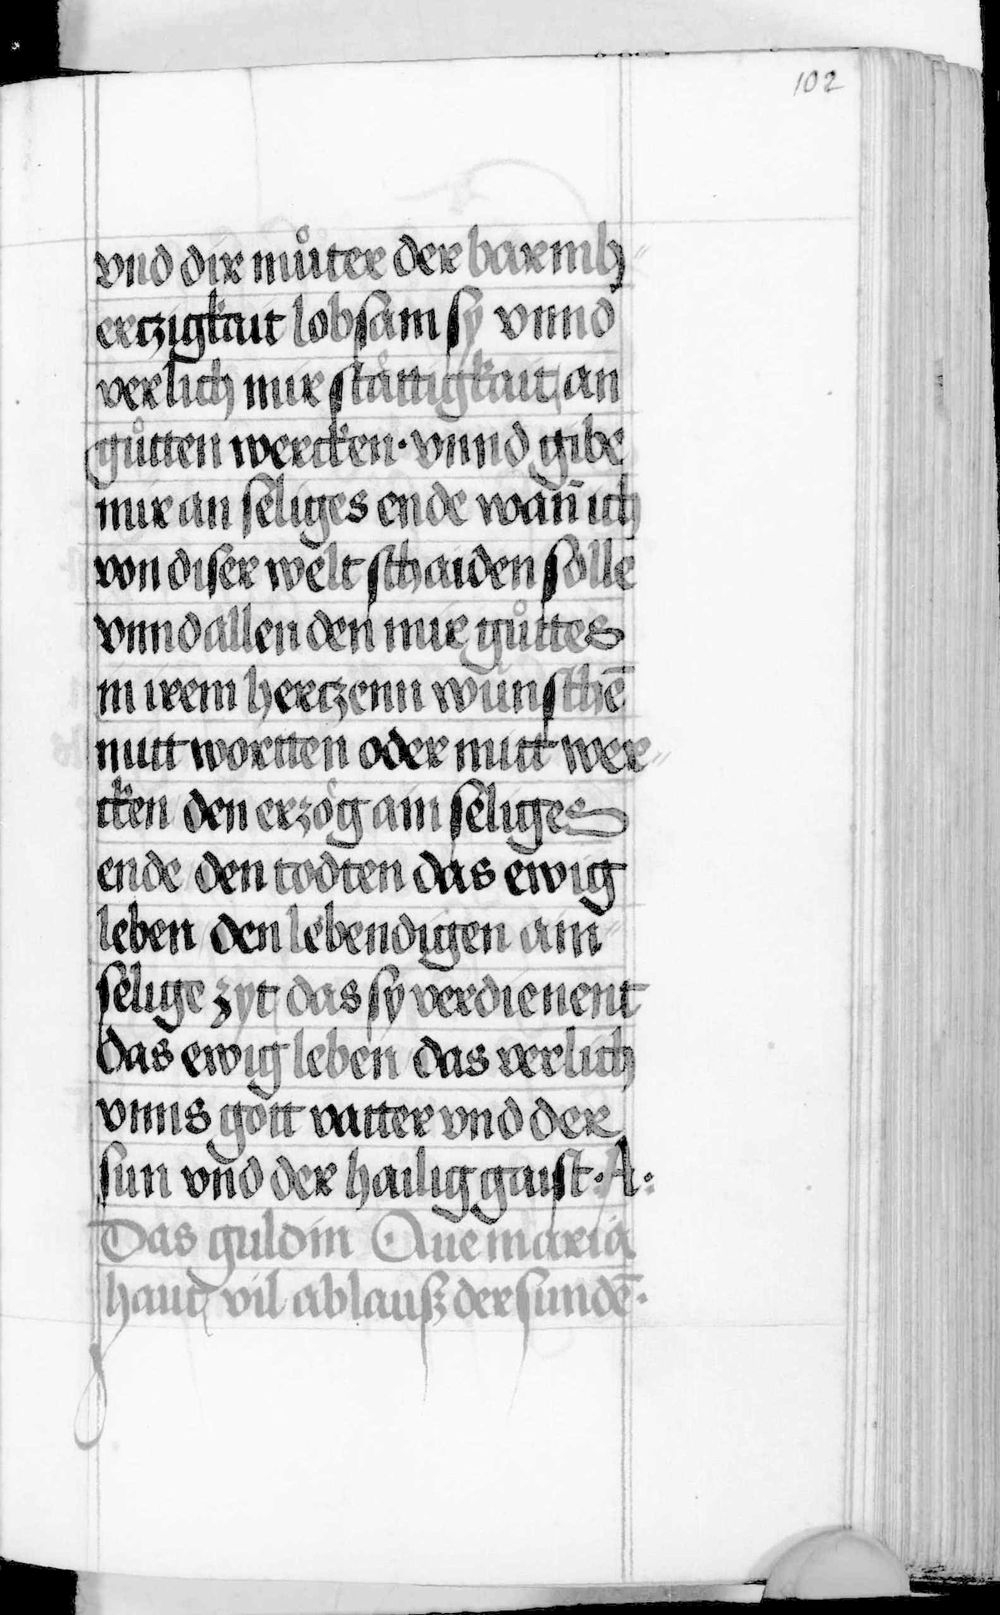 102
vnd dir můter der barmh„
ertzigkait lobsam sy vnnd
verlich mir stättigkait an
gůtten wercken· vnnd gibe
mir an seliges ende wan̄ ich
von diser welt schaiden sölle
vnnd allen den mir gůttes
in irem hertzenn wünschē
mitt wortten oder mitt wer„
cken den erzög ain seliges
ende den todten das ewig
leben den lebendigen ain„
selige zyt das sy verdienent
das ewig leben das verlich
vnns gott vatter vnd der
sun vnd der hailig gaist· A:
Das guldin Aue maria
haut vil ablausz der sündē·